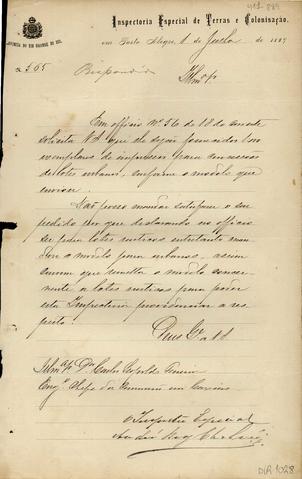 411-889
Inspectoria Especial de Terras e Colonisação.
PROVINCIA DO RIO GRANDE DO SUL
em Porto Alegre, 1 de Junho de 1889
Nº 565 Respondido
Illmo Sr
Em officio Nº 36 de 18 do
solicita V.S. que lhe sejam fornecidos
exemplares de impressos para
de lotes urbanos, conforme o modelo que
enviou.
Não posso mandar satisfazer o seu
pedido por que declarando no officio
ser para lotes rusticos entretanto man
dou o modelo para urbanos, assim
convem que remetta o modelo concer-
nente a lotes rusticos para poder
esta Inspectoria providenciar a res
peito.
Deus Gde a V.S.
Illmo Sr Dr Carlos Leopoldo
Engº Chefe da Commissão em Caxias
O Inspector Especial
DIR 1028